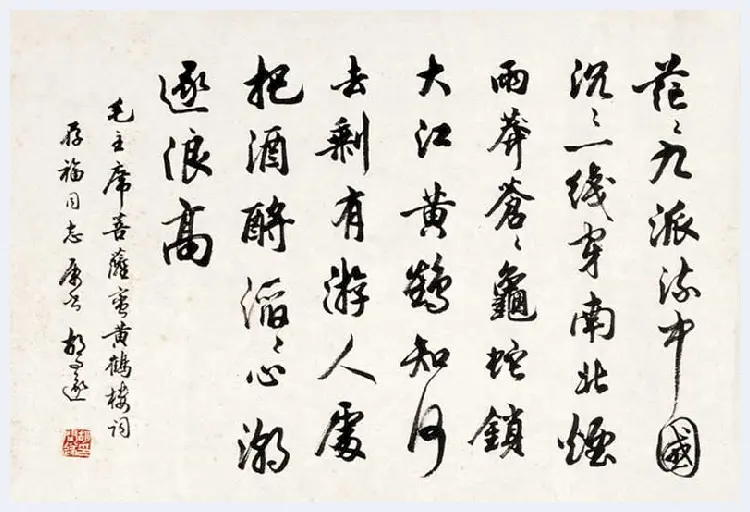 茫〻九派流中國
沉〻一綫穿南北煙
雨莽蒼〻龜蛇鎖
大江黄鶴知何
去剩有游人處
把酒酹滔〻心潮
逐浪高
毛主席菩薩蠻黄鶴樓詞
存福同志属书 胡